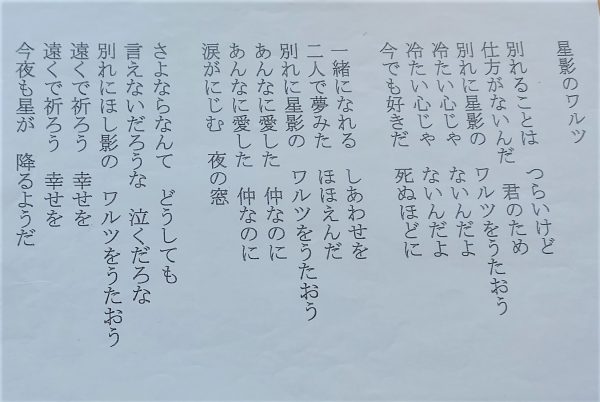 星影のワルツ
別れることは　つらいけど
仕方がないんだ　君のため
別れに星影の　ワルツをうたおう
冷たい心じゃ　ないんだよ
冷たい心じゃ　ないんだよ
今でも好きだ　死ぬほどに
一緒になれる　しあわせを
二人で夢みた　ほほえんだ
別れに星影の　ワルツをうたおう
あんなに愛した　仲なのに
あんなに愛した　仲なのに
涙がにじむ　夜の窓
さよならなんて　どうしても
言えないだろうな　泣くだろな
別れにほし影の　ワルツをうたおう
遠くで祈ろう　幸せを
遠くで祈ろう　幸せを
今夜も星が　降るようだ